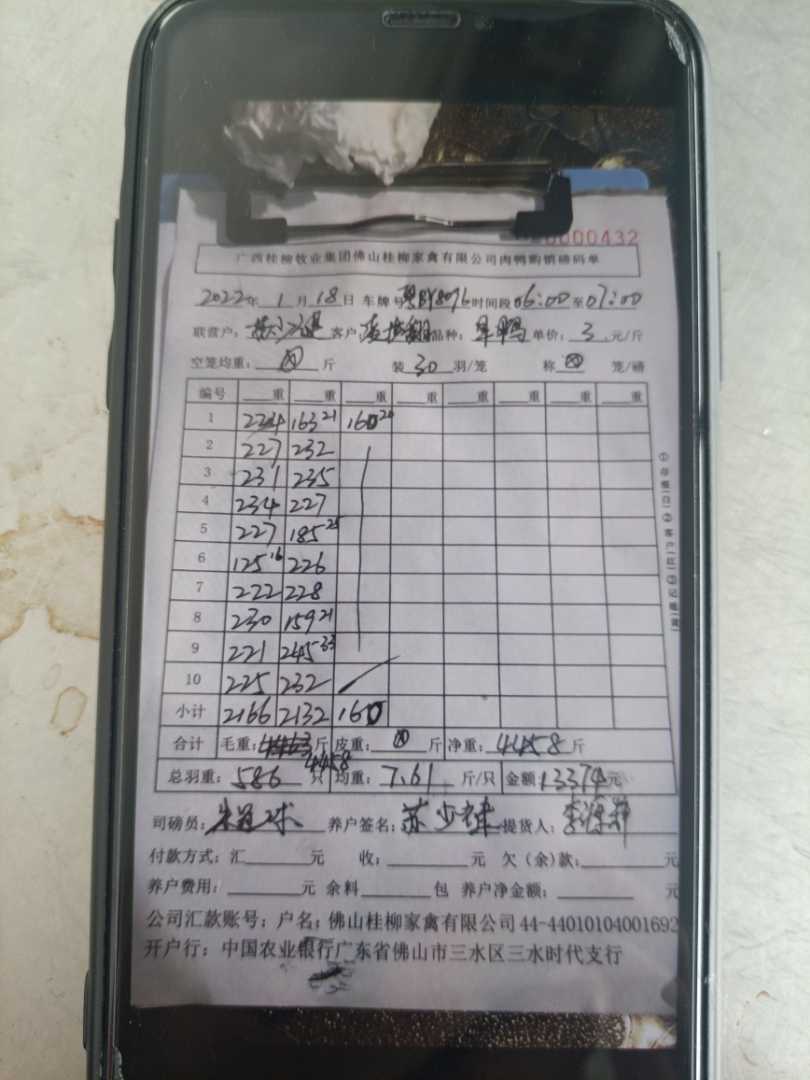 0000432
广西桂柳牧业集团佛山桂柳家禽有限公司肉鸭购销磅码单
2022年 1月 18日 车牌号 时间段 06:00 至 07:00
联营户: 客户: 品种: 鸭 单价: 3 元/斤
空笼均重: 斤 装 30 羽/笼 称 笼/磅
编号 重 重 重 重 重 重 重 重
1 224 163 21 160 20
2 227 232
3 231 235
4 234 227
5 227 185 25
6 125 16 226
7 222 228
8 230 159 21
9 221 245 33
10 225 232
小计 2166 2132 160
合计 毛重: 4458 斤 皮重: 斤 净重: 4458 斤
总羽重: 586 只 均重: 7.61 斤/只 金额 13374 元
司磅员: 养户签名: 苏少 提货人:
付款方式: 汇 元 收: 元 欠(余)款: 元
养户费用: 元 余料 包 养户净金额: 元
公司汇款账号: 户名: 佛山桂柳家禽有限公司 44-44010104001692
开户行: 中国农业银行广东省佛山市三水区三水时代支行
①存根(白)②客户(红)③记账(黄)